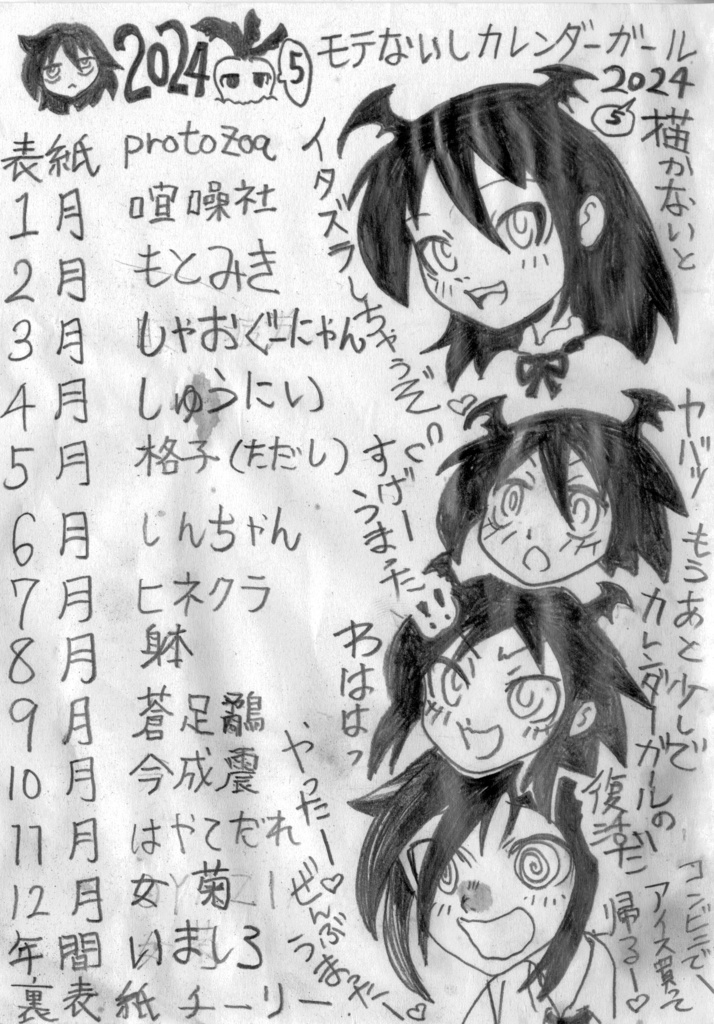 2024
5
モテないしカレンダーガール
2024
5
表紙 protozoa
1月 喧噪社
2月 もとみき
3月 しゃおぐーにゃん
4月 しゅうにぃ
5月 格子(ただし)
6月 じんちゃん
7月 ヒネクラ
8月 身体
9月 蒼足鷸
10月 今成震
11月 はやてだれ
12月 女菊
年間 いましろ
裏表紙 チーリー
描かないと
イタズラしちゃうぞ♡
すげー
うまった!!
ヤバッ もうあと少しで
カレンダーガールの
復活だ
わははっ
やったー♡
ぜんぶ
うまったー♡
コンビニで、
アイス買って
帰るー♡